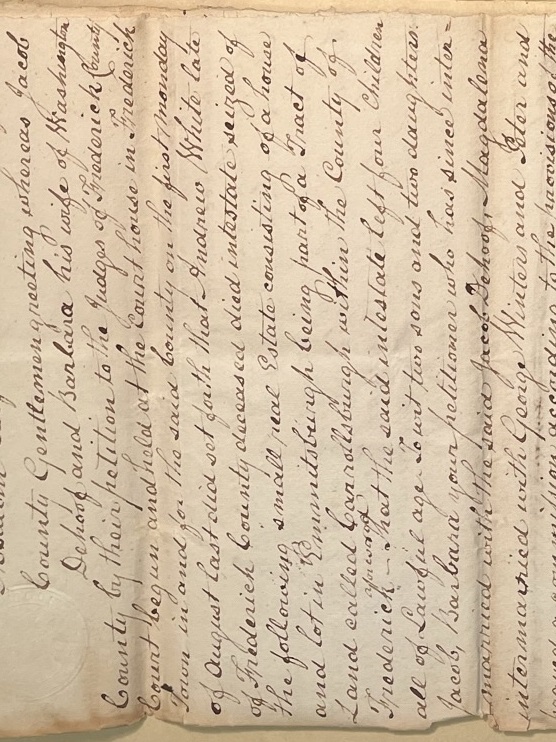 County Gentlemen greeting whereas Jacob
Dehoof and Barbara his wife of Washington
County by their petition to the Judges of Frederick County
Court begun and held at the Courthouse in Frederick
Town in and for the said County on the first monday
of August last did set forth that Andrew White late
of Frederick County deceased died intestate seized of
the following small real Estate consisting of a house
and lot in Emmitsburgh being part of a Tract of
Land called Carrollsburgh within the County of
Frederick – That the said intestate left four Children
all of Lawful age To wit two sons and two daughters
Jacob, Barbara your petitioner who has since inter=
married with the said Jacob Dehoof, Magdalena
intermarried with George Winter and Peter and